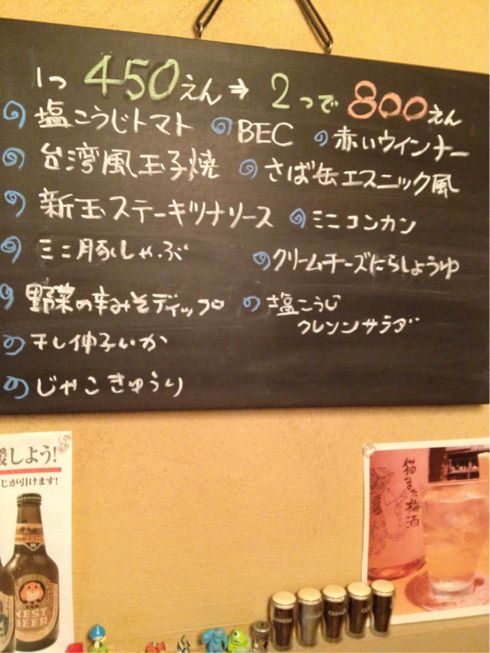 1つ 450えん→2つで 800えん
塩こうじトマト BEC 赤いウインナー
台湾風玉子焼 さば缶エスニック風
新玉ステーキツナソース ミニコンカン
ミニ豚しゃぶ クリームチーズにらしょうゆ
野菜の辛みそディップ 塩こうじ
クレソンサラダ
じゃこきゅうり
援しよう!
じが引けます!
猫また梅酒
NEST
BEER
GUINNESS